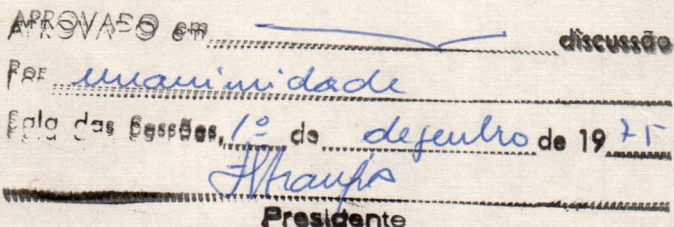 APROVADO em discussão
Por unanimidade
Sala das Sessões, 1º de dezembro de 1975
Presidente